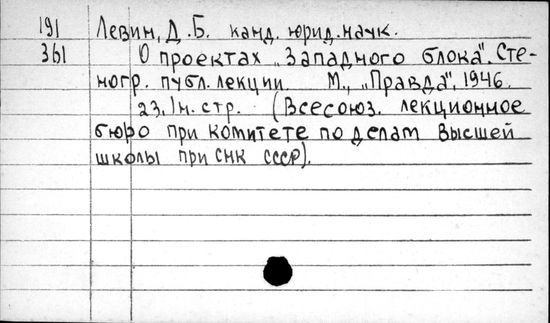 191 Левин, Д.Б. канд. юрид. наук.
361 О проектах „Западного блока". Сте-
ногр. публ. лекции. М., „Правда", 1946.
23, 1н. стр. (Всесоюз. лекционное
бюро при комитете по делам высшей
школы при СНК СССР).